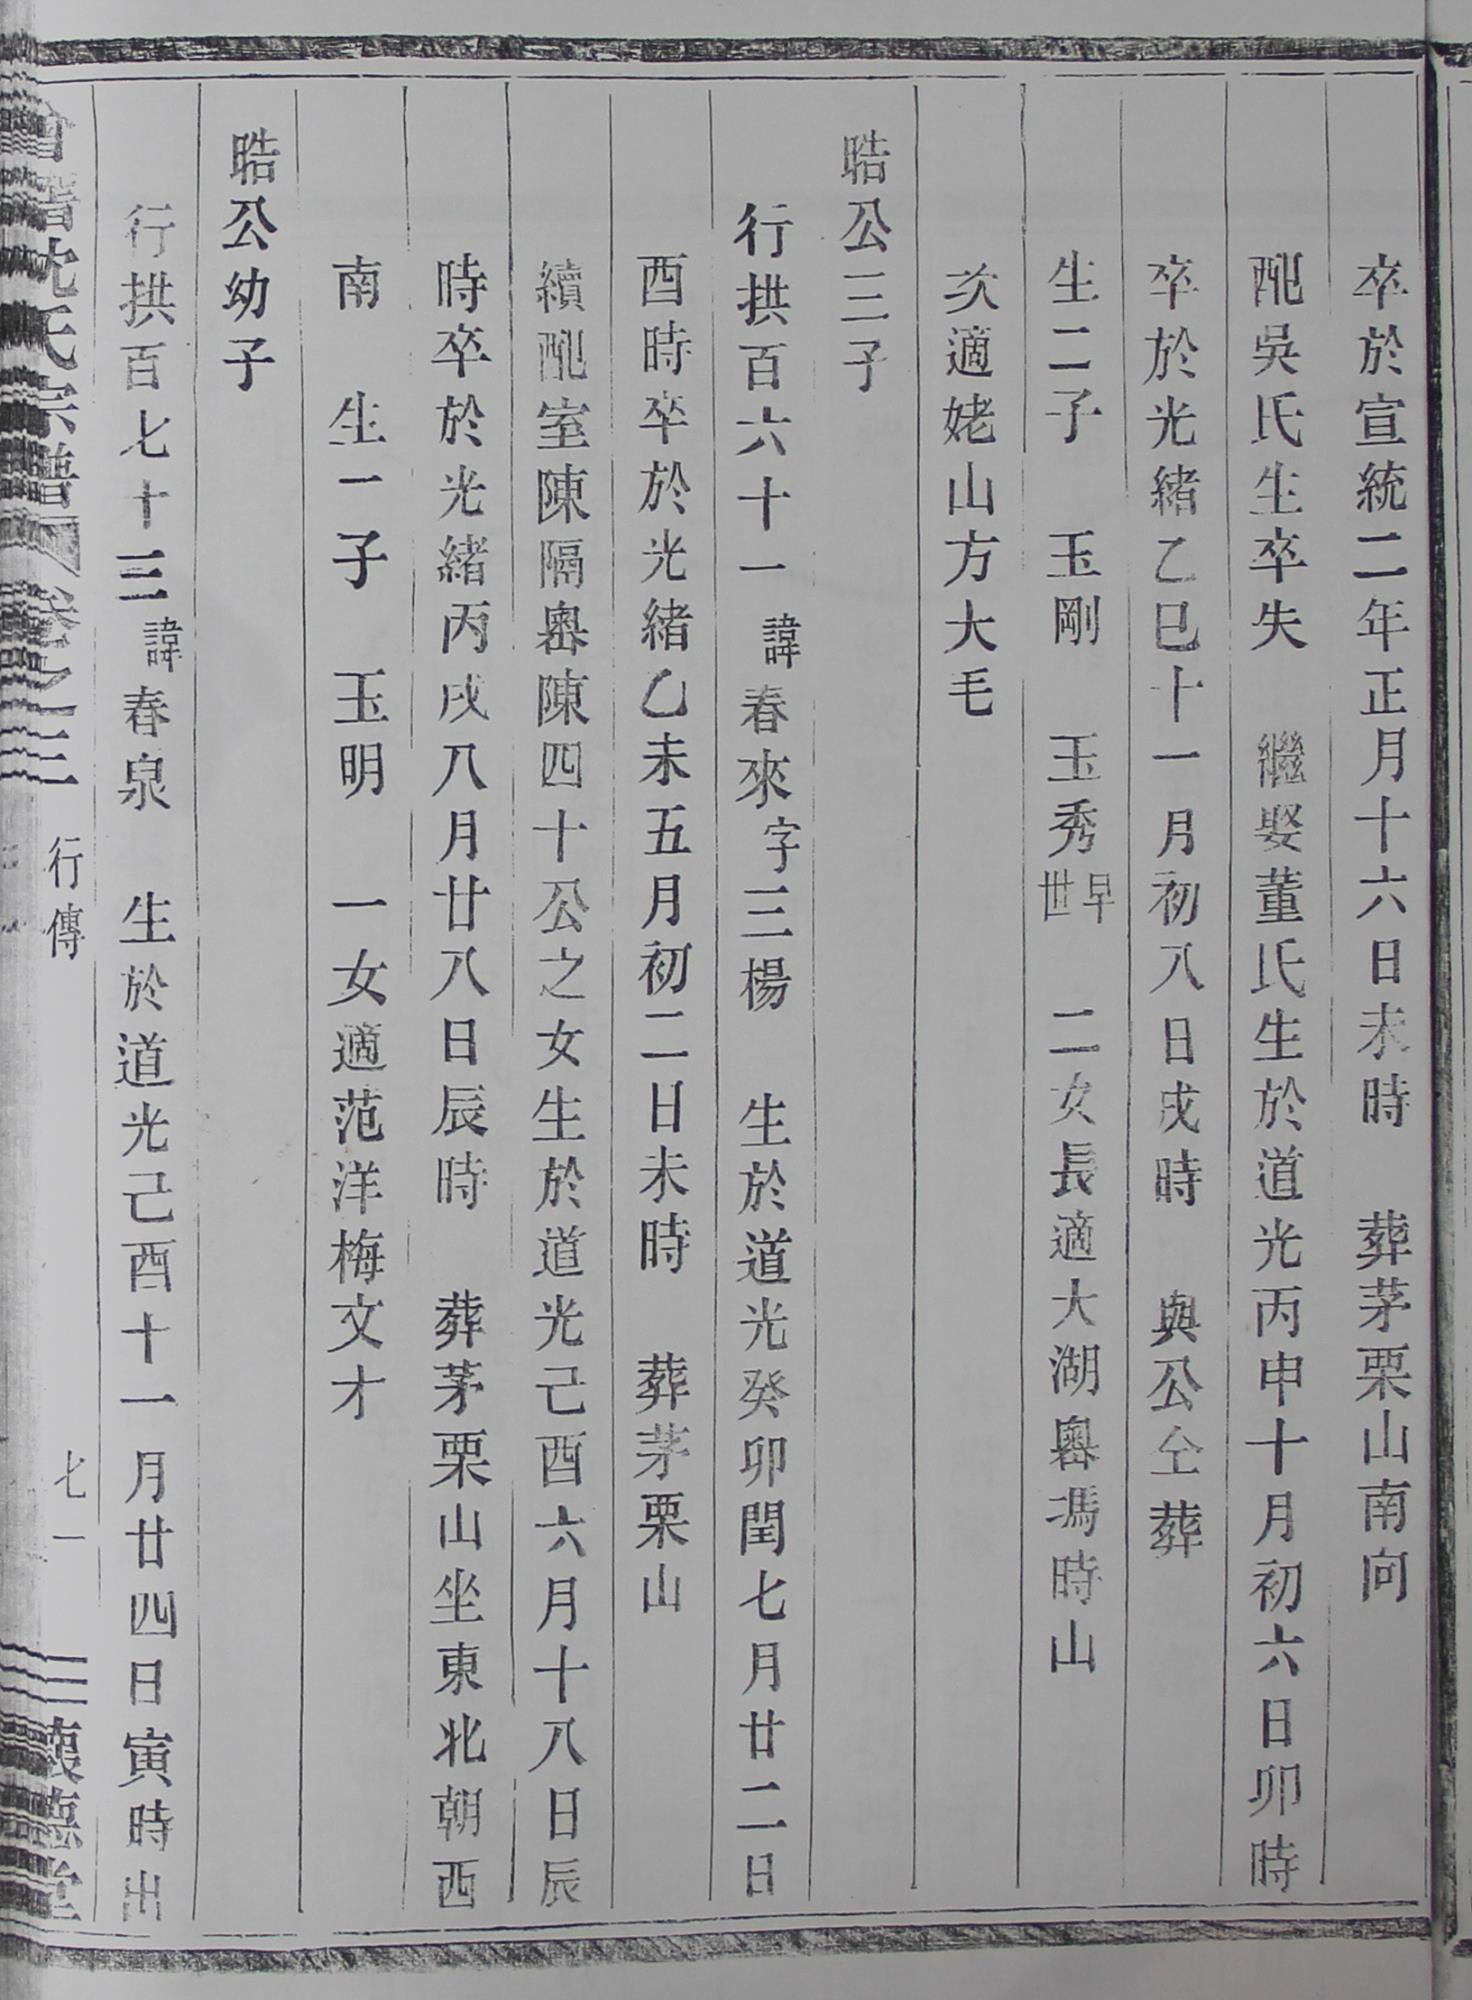 卒於宣統二年正月十六日未時　葬茅栗山南向
配吳氏生卒失　繼娶董氏生於道光丙申十月初六日卯時
卒於光緒乙巳十一月初八日戌時　與公仝葬
生二子　玉剛　玉秀早世　二女長適大湖嶴馮時山
次適姥山方大毛
晧公三子
行拱百六十一諱春來字三楊　生於道光癸卯閏七月廿二日
酉時卒於光緒乙未五月初二日未時　葬茅栗山
續配室陳隔嶴陳四十公之女生於道光己酉六月十八日辰
時卒於光緒丙戌八月廿八日辰時　葬茅栗山坐東北朝西
南　生一子　玉明　一女適范洋梅文才
晧公幼子
行拱百七十三諱春泉　生於道光己酉十一月廿四日寅時出
沈氏宗譜　卷之三　行傳　七一　懷德堂